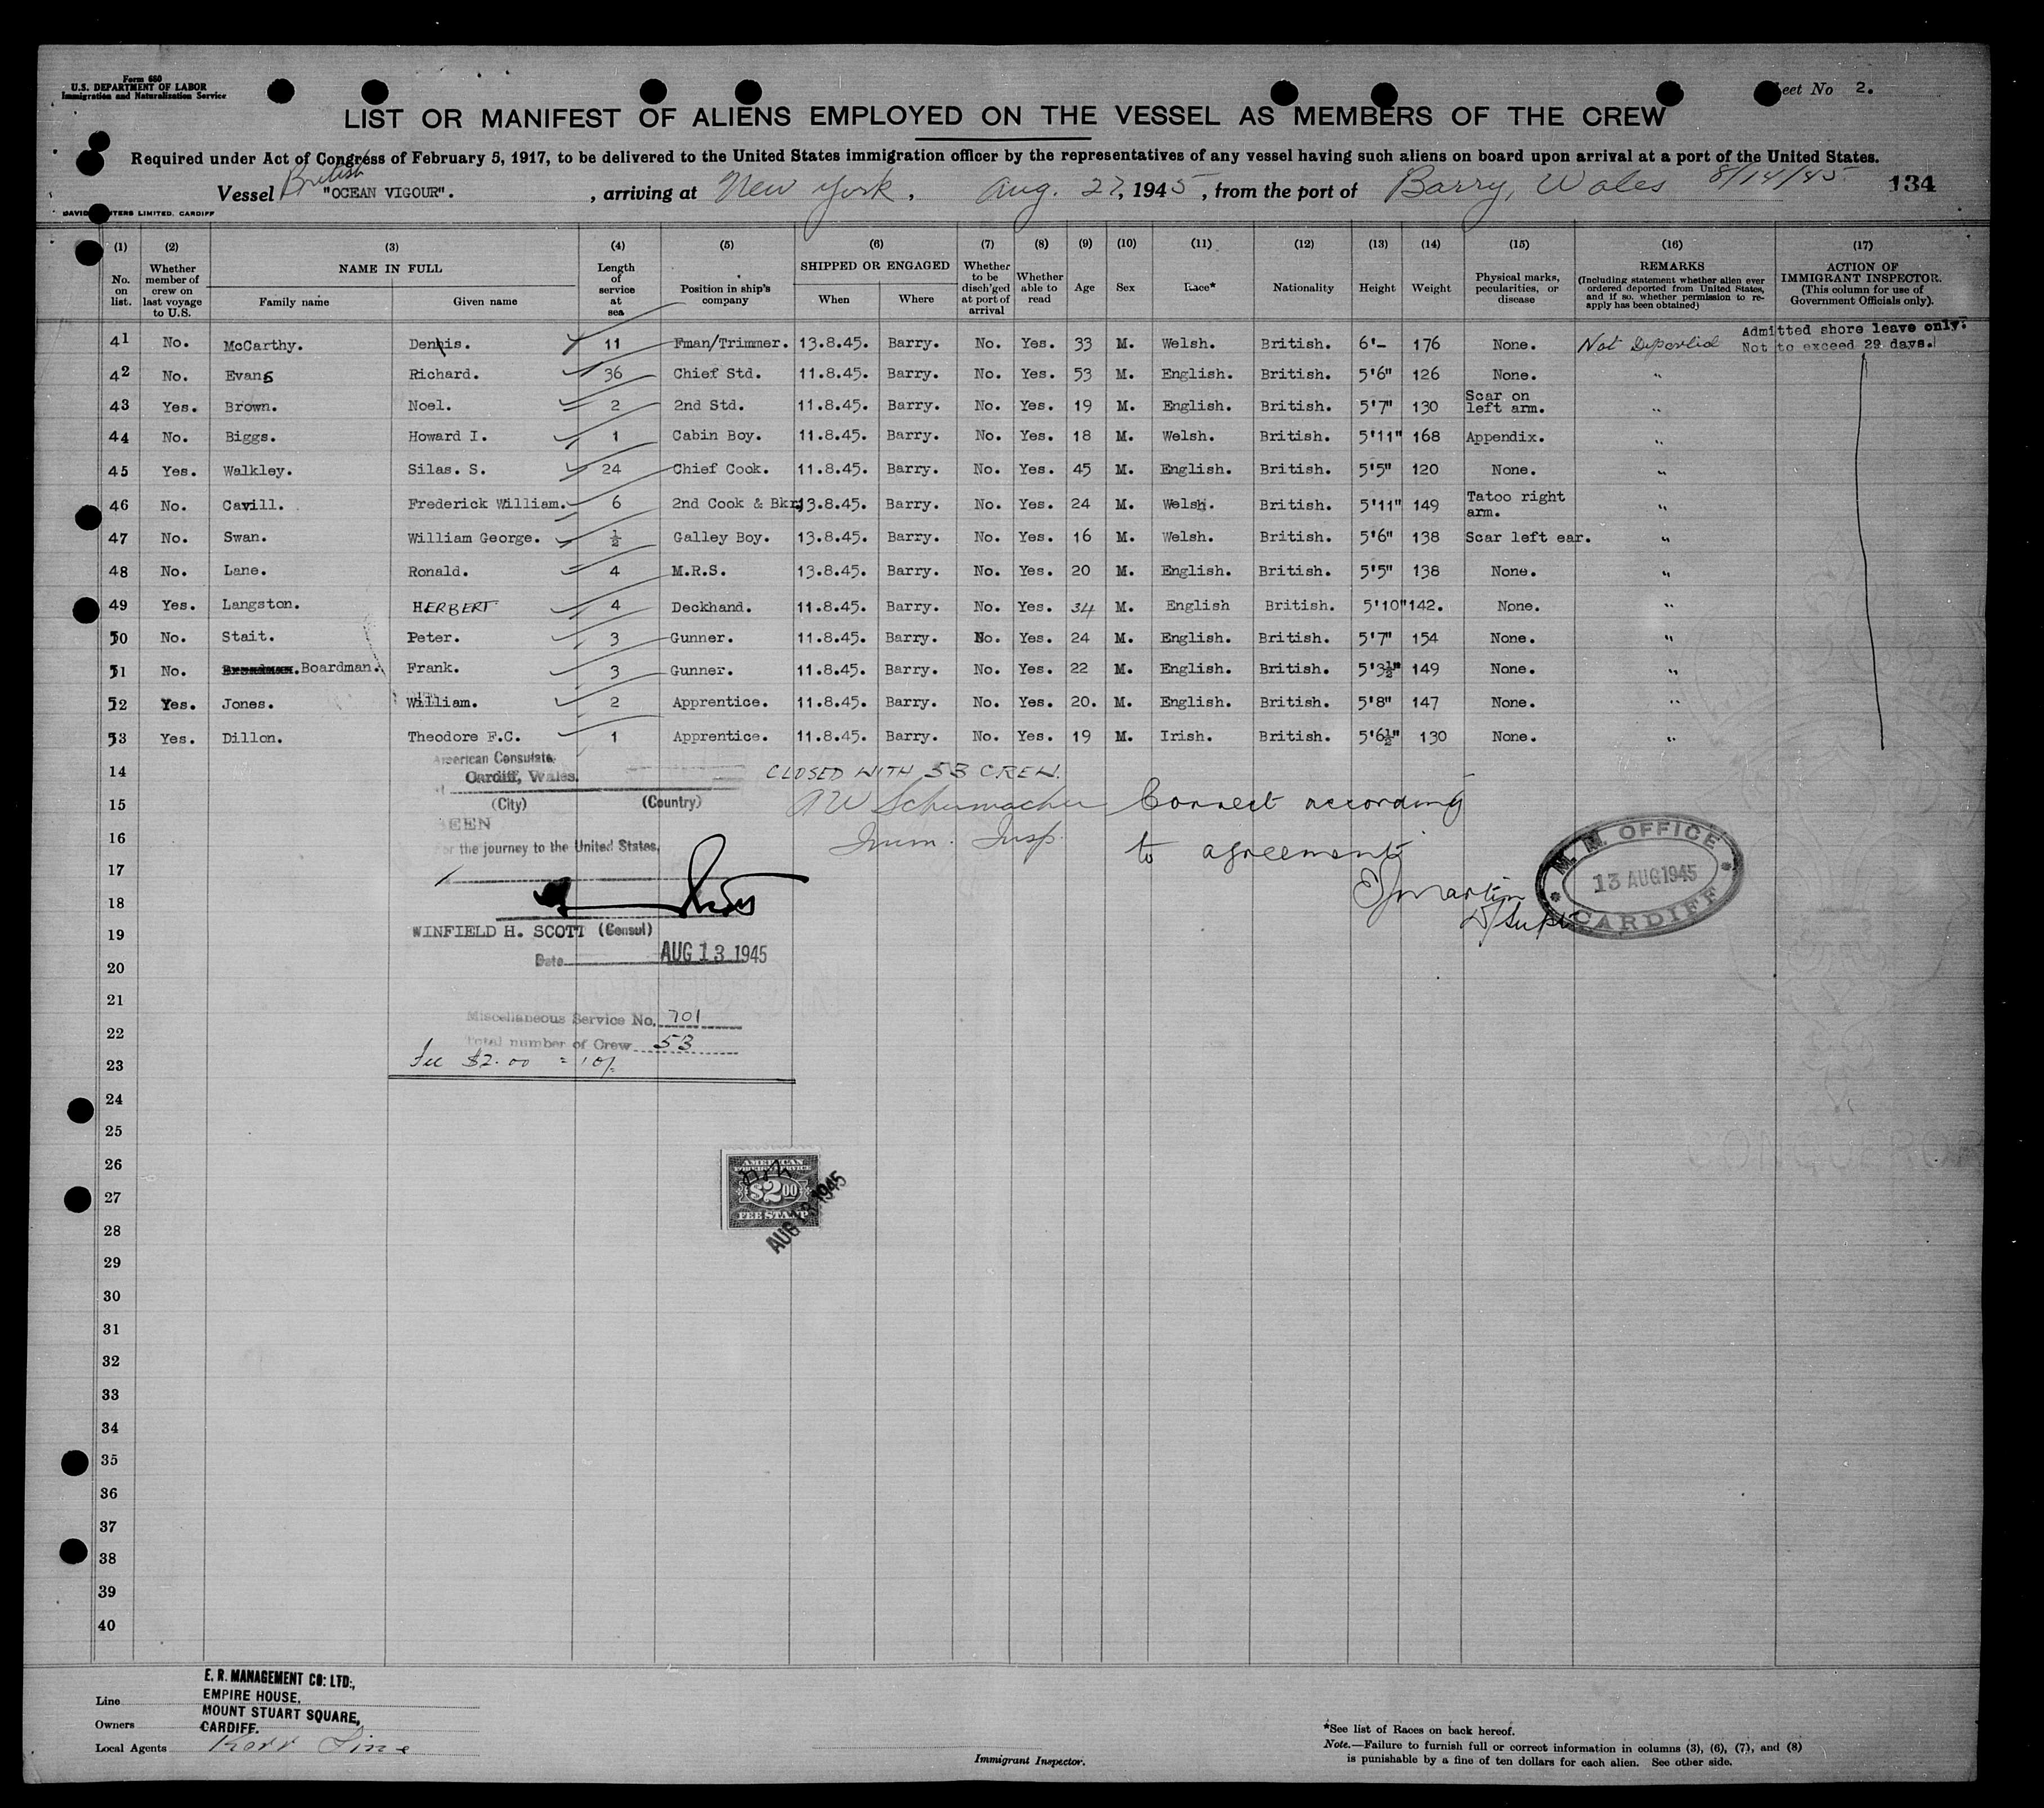 Form 680
U.S. DEPARTMENT OF LABOR
Immigration and Naturalization Service
eet No 2.
LIST OR MANIFEST OF ALIENS EMPLOYED ON THE VESSEL AS MEMBERS OF THE CREW
Required under Act of Congress of February 5, 1917, to be delivered to the United States immigration officer by the representatives of any vessel having such aliens on board upon arrival at a port of the United States.
Vessel British "OCEAN VIGOUR". , arriving at New York, Aug. 27, 1945, from the port of Barry, Wales 8/14/45 134
DAVID TERS LIMITED. CARDIFF
(1) (2) (3) (4) (5) (6) (7) (8) (9) (10) (11) (12) (13) (14) (15) (16) (17)
No. on list. Whether member of crew on last voyage to U.S. NAME IN FULL Family name Given name Length of service at sea Position in ship's company SHIPPED OR ENGAGED When Where Whether to be disch'ged at port of arrival Whether able to read Age Sex Race* Nationality Height Weight Physical marks, pecularities, or disease REMARKS (Including statement whether alien ever ordered deported from United States, and if so, whether permission to re-apply has been obtained) ACTION OF IMMIGRANT INSPECTOR. (This column for use of Government Officials only).
Admitted shore leave only.
Not to exceed 29 days.
41 No. McCarthy. Dennis. 11 Fman/Trimmer. 13.8.45. Barry. No. Yes. 33 M. Welsh. British. 6'- 176 None. Not Deported
42 No. Evans Richard. 36 Chief Std. 11.8.45. Barry. No. Yes. 53 M. English. British. 5'6" 126 None. "
43 Yes. Brown. Noel. 2 2nd Std. 11.8.45. Barry. No. Yes. 19 M. English. British. 5'7" 130 Scar on left arm. "
44 No. Biggs. Howard I. 1 Cabin Boy. 11.8.45. Barry. No. Yes. 18 M. Welsh. British. 5'11" 168 Appendix. "
45 Yes. Walkley. Silas. S. 24 Chief Cook. 11.8.45. Barry. No. Yes. 45 M. English. British. 5'5" 120 None. "
46 No. Cavill. Frederick William. 6 2nd Cook & Bkr. 13.8.45. Barry. No. Yes. 24 M. Welsh. British. 5'11" 149 Tatoo right arm. "
47 No. Swan. William George. ½ Galley Boy. 13.8.45. Barry. No. Yes. 16 M. Welsh. British. 5'6" 138 Scar left ear. "
48 No. Lane. Ronald. 4 M.R.S. 13.8.45. Barry. No. Yes. 20 M. English. British. 5'5" 138 None. "
49 Yes. Langston. HERBERT 4 Deckhand. 11.8.45. Barry. No. Yes. 34 M. English British. 5'10" 142. None. "
50 No. Stait. Peter. 3 Gunner. 11.8.45. Barry. No. Yes. 24 M. English. British. 5'7" 154 None. "
51 No. Boardman. Frank. 3 Gunner. 11.8.45. Barry. No. Yes. 22 M. English. British. 5'3½" 149 None. "
52 Yes. Jones. William. 2 Apprentice. 11.8.45. Barry. No. Yes. 20. M. English. British. 5'8" 147 None. "
53 Yes. Dillon. Theodore F.C. 1 Apprentice. 11.8.45. Barry. No. Yes. 19 M. Irish. British. 5'6½" 130 None. "
American Consulate
Cardiff, Wales.
(City) (Country)
EEN
for the journey to the United States.
WINFIELD H. SCOTT (Consul)
Date AUG 13 1945
Miscellaneous Service No. 701
Total number of Crew 53
Fee $2.00 = 10/-
CLOSED WITH 53 CREW.
A W Schumacher
Imm. Insp.
Correct according
to agreement
E J Martin
D/Supt
M. N. OFFICE
13 AUG 1945
CARDIFF
14
15
16
17
18
19
20
21
22
23
24
25
26
27
28
29
30
31
32
33
34
35
36
37
38
39
40
AMERICAN
FOREIGN SERVICE
$2.00
FEE STAMP
AUG 13 1945
CONQUEROR
E. R. MANAGEMENT CO: LTD.,
Line EMPIRE HOUSE,
MOUNT STUART SQUARE,
Owners CARDIFF.
Local Agents Kerr Line
Immigrant Inspector.
*See list of Races on back hereof.
Note.—Failure to furnish full or correct information in columns (3), (6), (7), and (8)
is punishable by a fine of ten dollars for each alien. See other side.